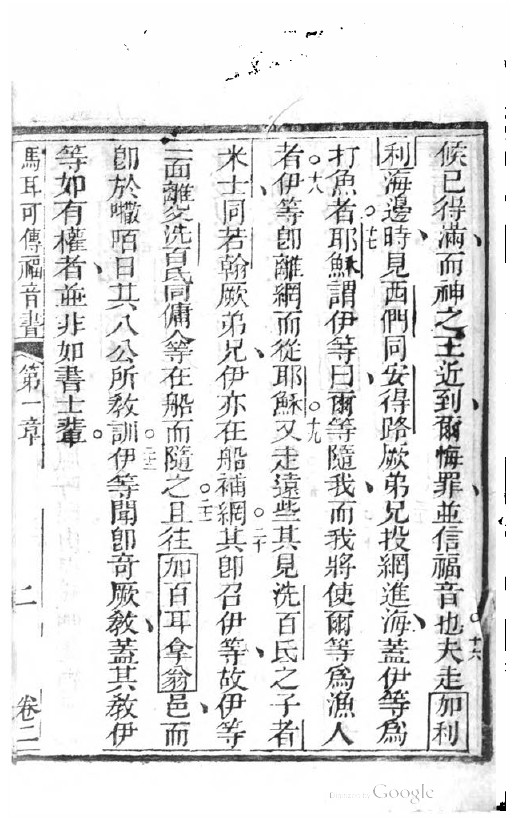 候已得滿而神之王近到爾悔罪並信福音也夫走加利
十六
利海邊時見西們同安得路厥弟兄投網進海蓋伊等為
十七
打魚者耶穌謂伊等曰爾等隨我而我將使爾等為漁人
十八
者伊等卽離網而從耶穌又走遠些其見洗百氏之子者
十九
米士同若翰厥弟兄伊亦在船補網其卽召伊等故伊等
二十
一面離父洗百氏同傭人等在船而隨之且往加百耳拿翁邑而
二一
卽於𠻳咟日其入公所教訓伊等聞卽奇厥教蓋其教伊
二二
等如有權者並非如書士輩
馬耳可傳福音書 第一章 二 卷二
Digitized by Google